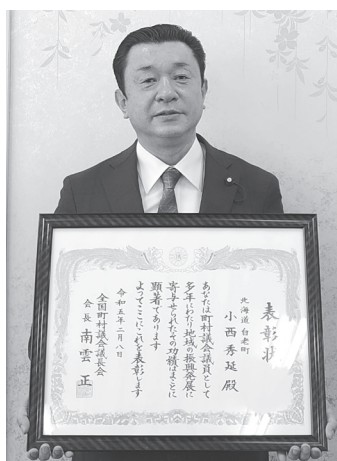 表彰状
北海道白老町
小西秀延 殿
あなたは町村議会議員として
多年にわたり地域の振興発展に
寄与せられたその功績はまことに
顕著であります
よってここにこれを表彰します
令和五年二月八日
全国町村議会議長会
会長 南雲 正